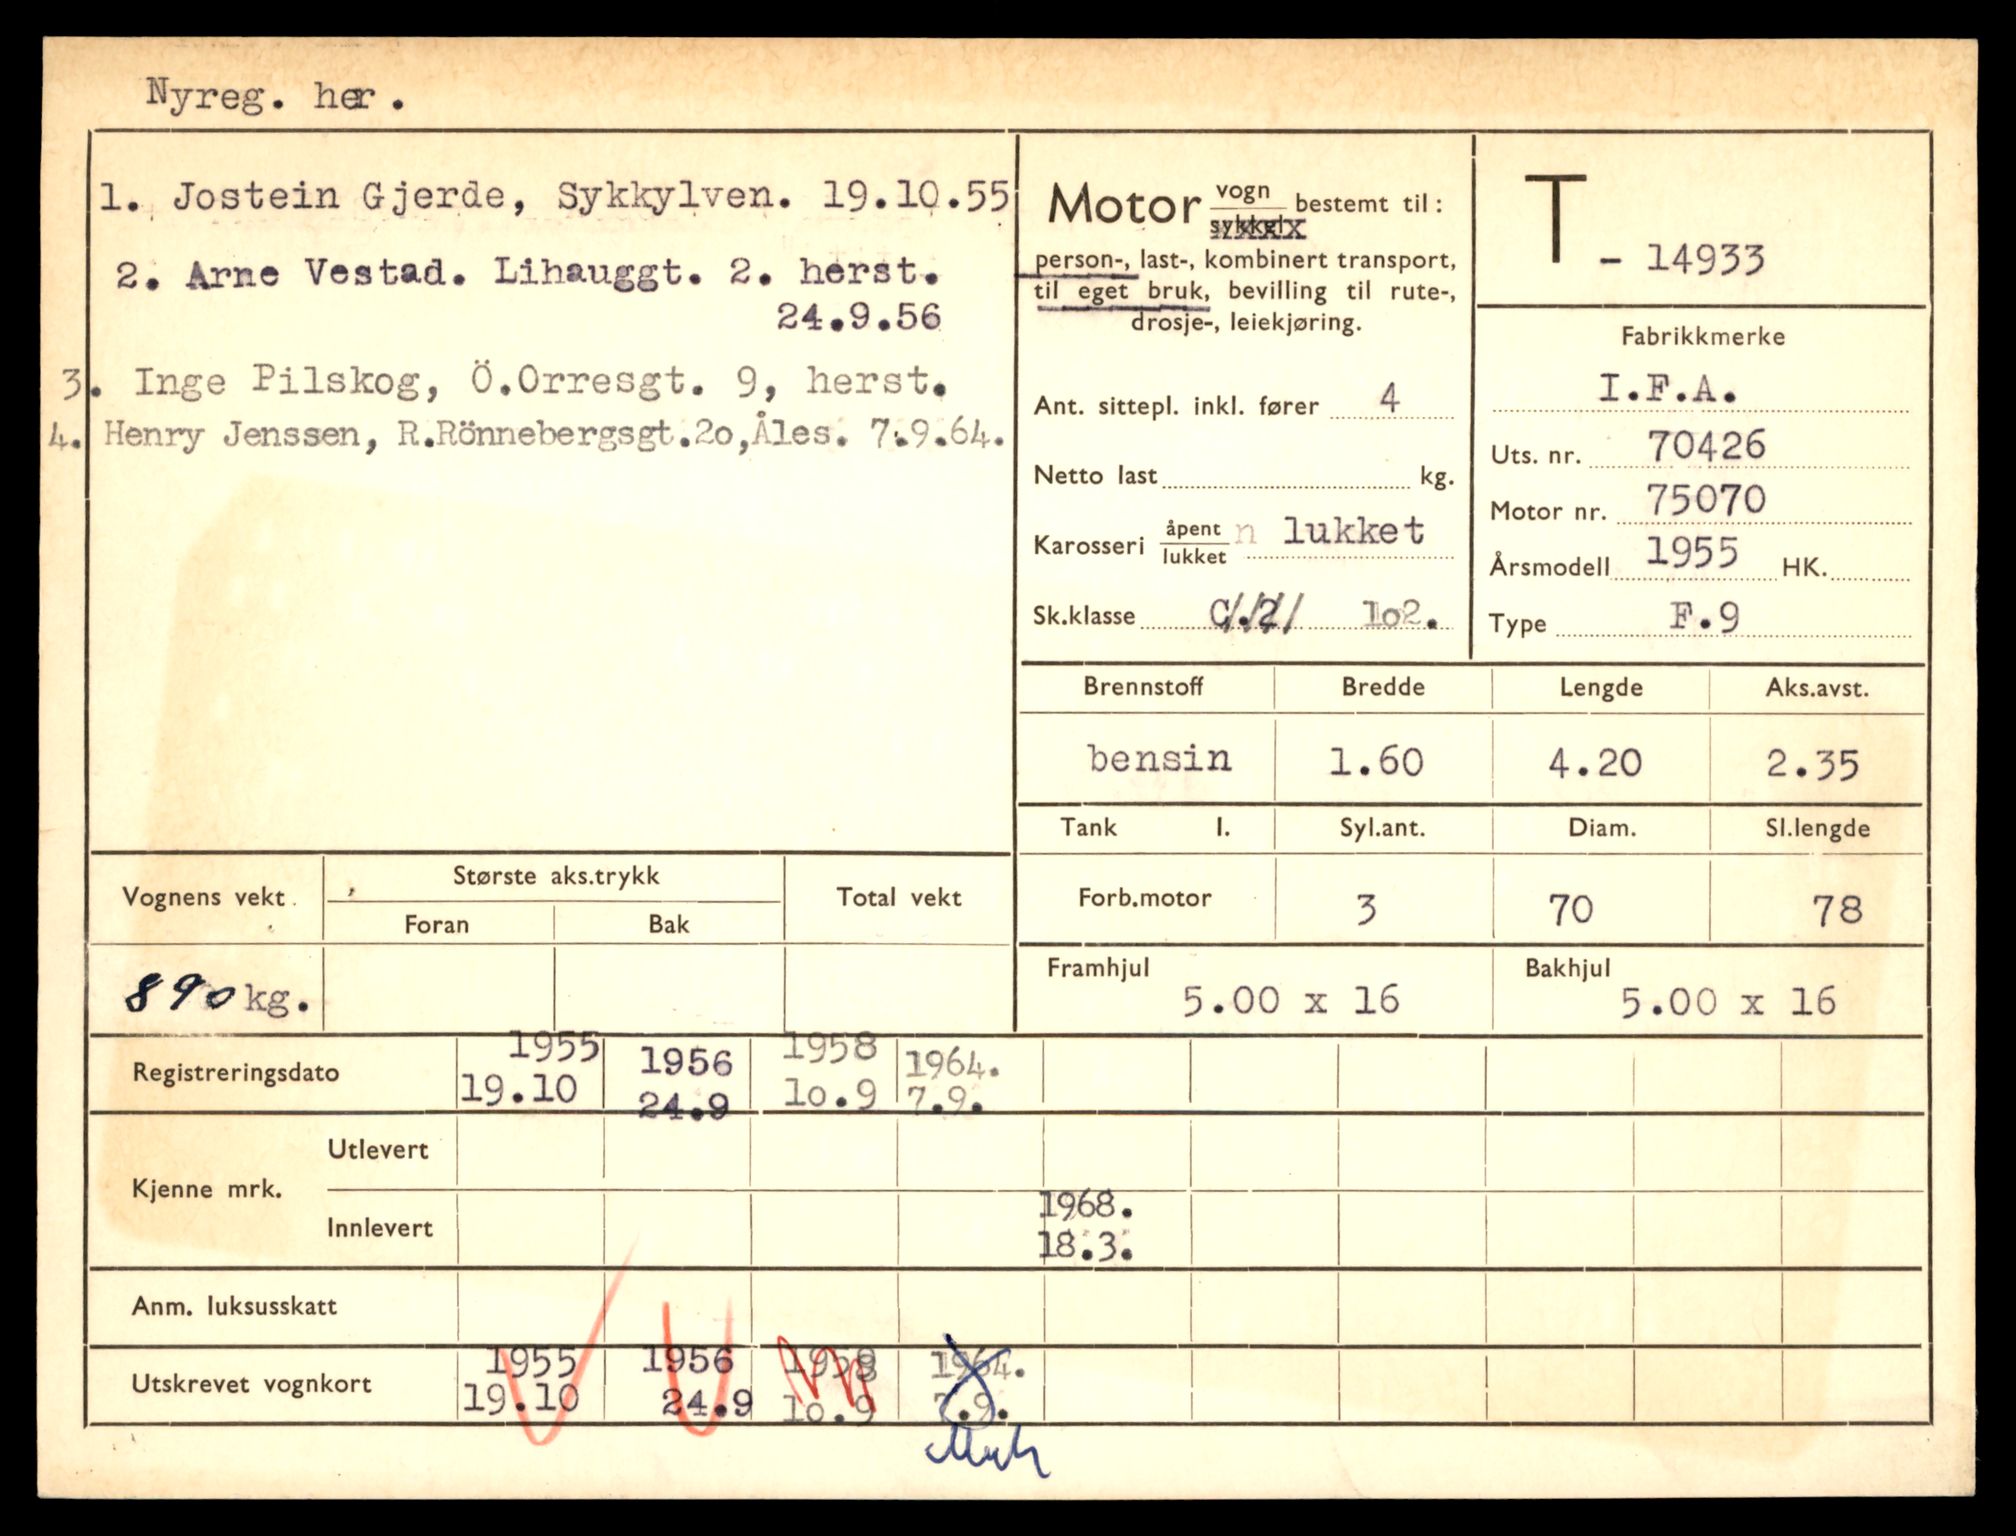 Nyreg. her.
1. Jostein Gjerde, Sykkylven. 19.10.55
2. Arne Vestad. Lihauggt. 2. herst.
24.9.56
3. Inge Pilskog, Ö.Orresgt. 9, herst.
4. Henry Jenssen, R.Rönnebergsgt.2o,Åles. 7.9.64.
Motor vogn bestemt til:
sykkel
person-, last-, kombinert transport,
til eget bruk, bevilling til rute-,
drosje-, leiekjøring.
Ant. sittepl. inkl. fører 4
Netto last kg.
Karosseri åpent lukket n lukket
Sk.klasse C.2 lo2.
T - 14933
Fabrikkmerke
I.F.A.
Uts. nr. 70426
Motor nr. 75070
Årsmodell 1955 HK.
Type F.9
Brennstoff Bredde Lengde Aks.avst.
bensin 1.60 4.20 2.35
Tank l. Syl.ant. Diam. Sl.lengde
Forb.motor 3 70 78
Framhjul Bakhjul
5.00 x 16 5.00 x 16
Vognens vekt Største aks.trykk Total vekt
Foran Bak
890 kg.
Registreringsdato 1955 1956 1958 1964.
19.10 24.9 lo.9 7.9.
Kjenne mrk. Utlevert
Innlevert 1968.
18.3.
Anm. luksusskatt
Utskrevet vognkort 1955 1956 1958 1964.
19.10 24.9 lo.9 7.9.